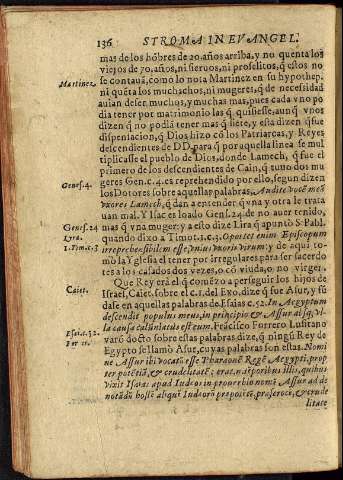 136 STROMA IN EVANGEL.
mas de los hõbres de 20. años arriba, y no quenta los
viejos de 70. años, ni sieruos, ni proselitos, q̃ estos no
se contauã, como lo nota Martinez en su hypothep.
Martinez
ni quẽta los muchachos, ni mugeres, q̃ de necesidad
auian de ser muchos, y muchas mas, pues cada vno po
dia tener por matrimonio las q̃ quisiesse, aunq̃ vnos
dizen q̃ no podiã tener mas q̃ siete, y esta dizen q̃ fue
dispensacion, q̃ Dios hizo cõ los Patriarcas, y Reyes
descendientes de DD. para q̃ por aquella linea se mul
tiplicasse el pueblo de Dios, donde Lamech, q̃ fue el
primero de los descendientes de Cain, q̃ tuuo dos mu
geres Gen. c. 4. es reprehendido por ello, segun dizen
Genes. 4.
los Dotores sobre aquellas palabras, Audite vocẽ meã
vxores Lamech, q̃ dan a entender q̃ vna y otra le trata
uan mal. Y Isac es loado Gens. 24. de no auer tenido,
Genes. 24
mas q̃ vna muger: y a esto dize Lira q̃ apuntò S. Pabl.
Lyra.
quando dixo a Timot. 1. c. 3. Oportet enim Episcopum
1. Tim. c. 3
irreprehẽsibilem esse, vnius vxoris virum: y de aqui to-
mò la Yglesia el tener por irregulares para ser sacerdo
tes a los casados dos vezes, o cõ viuda, o no virgen.
Que Rey era el q̃ comẽzò a perseguir los hijos de
Israel, Caiet. sobre el c. 1. del Exo. dize q̃ fue Asur, y fũ
Caiet.
dase en aquellas palabras de Esaias c. 52. In Aegyptum
descendit populus meus, in principio & Assur absq; vl-
la causa calũniatus est eum. Frãcisco Forrero Lusitano
Esai. c. 52.
varõ docto sobre estas palabras dize, q̃ ningũ Rey de
Egypto se llamò Asur, cuyas palabras son estas. Nomi
ne Assur ibi vocatũ esse Pharaonẽ Regẽ Aegypti, prop
ter potẽtiã, & crudelitatẽ; erat, n. tẽporibus illis, quibus
vixit Isaias apud Iudęos in prouerbio nomẽ Assur ad de
notãdũ hostẽ aliquẽ Iudęorũ propotẽtẽ, pręferocẽ, & crude
litate